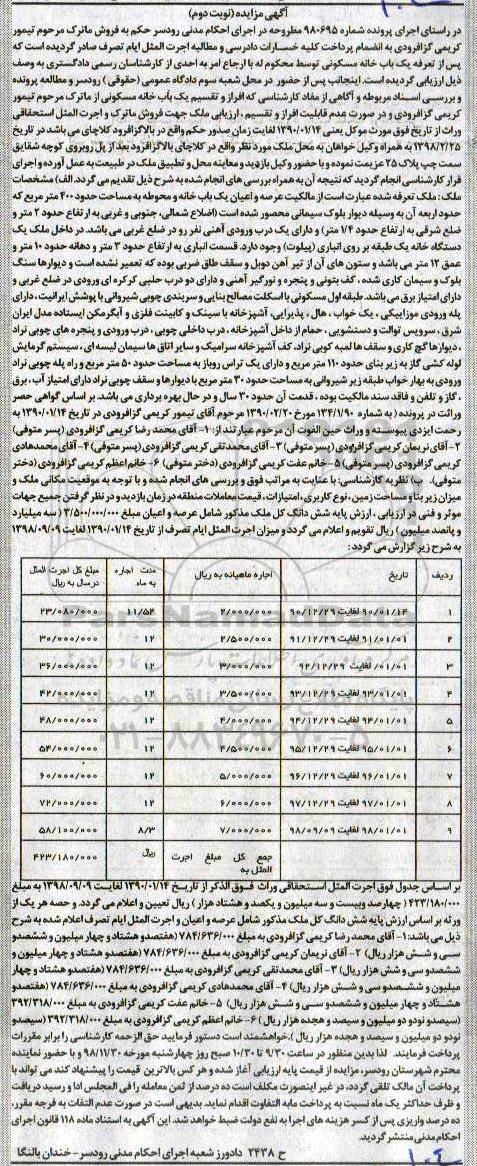 آگهی مزایده (نوبت دوم)
در راستای اجرای پرونده شماره ۹۸۰۶۹۵ مطروحه در اجرای احکام مدنی رودسر حکم به فروش ماترک مرحوم تیمور
کریمی گزافرودی به انضمام پرداخت کلیه خسارات دادرسی و مطالبه اجرت المثل ایام تصرف صادر گردیده است که
پس از تعرفه یک باب خانه مسکونی توسط محکوم له با ارجاع امر به احدی از کارشناسان رسمی دادگستری به وصف
ذیل ارزیابی گردیده است. اینجانب پس از حضور در محل شعبه سوم دادگاه عمومی (حقوقی) رودسر و مطالعه پرونده
و بررسی اسناد مربوطه و آگاهی از مفاد کارشناسی که افراز و تقسیم یک باب خانه مسکونی از ماترک مرحوم تیمور
کریمی گزافرودی و در صورت عدم قابلیت افراز و تقسیم ، ارزیابی ملک جهت فروش ماترک و اجرت المثل استحقاقی
وراث از تاریخ فوق مورث موکل یعنی ۱۳۹۰/۰۱/۱۴ لغایت زمان صدور حکم واقع در بالاگزافرود کلاچای می باشد در تاریخ
۱۳۹۸/۲/۲۵ به همراه وکیل خواهان به محل ملک مورد نظر واقع در کلاچای بالاگزافرود بعد از پل روبروی کوچه شقایق
سمت چپ پلاک ۲۵ عزیمت نموده و با حضور وکیل بازدید و معاینه محل و تطبیق ملک در طبیعت به عمل آورده و اجرای
قرار کارشناسی انجام گردید که نتیجه آن به همراه بررسی های انجام شده به شرح ذیل تقدیم می گردد. الف) مشخصات
ملک: ملک تعرفه شده عبارت است از مالکیت عرصه و اعیان یک باب خانه و محوطه به مساحت حدود ۴۰۰ متر مربع که
حدود اربعه آن به وسیله دیوار بلوک سیمانی محصور شده است (اضلاع شمالی، جنوبی و غربی به ارتفاع حدود ۲ متر و
ضلع شرقی به ارتفاع حدود ۱/۴ متر) و دارای یک درب ورودی آهنی نفر رو در ضلع غربی می باشد. در داخل ملک یک
دستگاه خانه یک طبقه بر روی انباری (پیلوت) وجود دارد. قسمت انباری به ارتفاع حدود ۳ متر و دهانه حدود ۱۰ متر و
عمق ۱۲ متر می باشد و ستون های آن از تیر آهن دوبل و سقف طاق ضربی بوده که تعمیر نشده است و دیوارها سنگ
بلوک و سیمان کاری شده ، کف بتونی و پنجره و نورگیر آهنی و دارای دو درب حلبی کرکره ای ورودی در ضلع غربی و
دارای امتیاز برق می باشد. طبقه اول مسکونی با اسکلت مصالح بنایی و سربندی چوبی شیروانی با پوشش ایرانیت، دارای
پله ورودی موزاییکی ، یک خواب ، هال ، پذیرایی، آشپزخانه با سینک و کابینت فلزی و آبگرمکن ایستاده مدل ایران
شرق ، سرویس توالت و دستشویی ، حمام از داخل آشپزخانه ، درب داخلی چوبی ، درب ورودی و پنجره های چوبی نراد
، دیوارها گچ کاری و سقف ها لمبه کوبی نراد، کف آشپزخانه سرامیک و سایر اتاق ها سیمان لیسه ای ، سیستم گرمایش
لوله کشی گاز به زیر بنای حدود ۱۱۰ متر مربع و دارای یک تراس روباز به مساحت حدود ۵۰ متر مربع و راه پله چوبی نراد
ورودی به بهار خواب طبقه زیر شیروانی به مساحت حدود ۳۰ متر مربع با دیوارها و سقف چوبی نراد دارای امتیاز آب ، برق
، گاز و تلفن و فاقد سند مالکیت بوده ، قدمت آن حدود ۳۰ سال و در حال بهره برداری می باشد. بر اساس گواهی حصر
وراثت در پرونده به شماره ۱۳۴/۱/۹۰ مورخ ۱۳۹۰/۰۲/۲۰ مرحوم آقای تیمور کریمی گزافرودی در تاریخ ۱۳۹۰/۰۱/۱۴ به
رحمت ایزدی پیوسته و وراث حین الفوت آن مرحوم عبارتند از: ۱- آقای محمد رضا کریمی گزافرودی (پسر متوفی)
۲- آقای نریمان کریمی گزافرودی (پسر متوفی) ۳- آقای محمدتقی کریمی گزافرودی (پسر متوفی) ۴- آقای محمدهادی
کریمی گزافرودی (پسر متوفی) ۵- خانم عفت کریمی گزافرودی (دختر متوفی) ۶- خانم اعظم کریمی گزافرودی (دختر
متوفی). ب) نظریه کارشناسی: با عنایت به مراتب فوق و بررسی های انجام شده و با توجه به موقعیت مکانی ملک و
میزان زیر بنا و مساحت زمین ، نوع کاربری ، امتیازات ، قیمت معاملات منطقه در زمان بازدید و در نظر گرفتن جمیع جهات
موثر و فنی در ارزیابی ، ارزش پایه شش دانگ کل ملک مذکور شامل عرصه و اعیان مبلغ ۳/۵۰۰/۰۰۰/۰۰۰ (سه میلیارد
و پانصد میلیون ) ریال تقویم و اعلام می گردد و میزان اجرت المثل ایام تصرف از تاریخ ۱۳۹۰/۰۱/۱۴ لغایت ۱۳۹۸/۰۹/۰۹
به شرح زیر گزارش می گردد:
ردیف تاریخ اجاره ماهیانه به ریال مدت اجاره به ماه مبلغ کل اجرت المثل در سال به ریال
۱ ۹۰/۰۱/۱۴ لغایت ۹۰/۱۲/۲۹ ۲/۰۰۰/۰۰۰ ۱۱/۵۴ ۲۳/۰۸۰/۰۰۰
۲ ۹۱/۰۱/۰۱ لغایت ۹۱/۱۲/۲۹ ۲/۵۰۰/۰۰۰ ۱۲ ۳۰/۰۰۰/۰۰۰
۳ ۰۱/۰۱/ لغایت ۹۲/۱۲/۲۹ ۳/۰۰۰/۰۰۰ ۱۲ ۳۶/۰۰۰/۰۰۰
۴ ۹۳/۰۱/۰۱ لغایت ۹۳/۱۲/۲۹ ۳/۵۰۰/۰۰۰ ۱۲ ۴۲/۰۰۰/۰۰۰
۵ ۹۴/۰۱/۰۱ لغایت ۹۴/۱۲/۲۹ ۴/۰۰۰/۰۰۰ ۱۲ ۴۸/۰۰۰/۰۰۰
۶ ۹۵/۰۱/۰۱ لغایت ۹۵/۱۲/۲۹ ۴/۵۰۰/۰۰۰ ۱۲ ۵۴/۰۰۰/۰۰۰
۷ ۹۶/۰۱/۰۱ لغایت ۹۶/۱۲/۲۹ ۵/۰۰۰/۰۰۰ ۱۲ ۶۰/۰۰۰/۰۰۰
۸ ۹۷/۰۱/۰۱ لغایت ۹۷/۱۲/۲۹ ۶/۰۰۰/۰۰۰ ۱۲ ۷۲/۰۰۰/۰۰۰
۹ ۹۸/۰۱/۰۱ لغایت ۹۸/۰۹/۰۹ ۷/۰۰۰/۰۰۰ ۸/۳ ۵۸/۱۰۰/۰۰۰
جمع کل مبلغ اجرت المثل به ریال ۴۲۳/۱۸۰/۰۰۰
بر اساس جدول فوق اجرت المثل استحقاقی وراث فوق الذکر از تاریخ ۱۳۹۰/۰۱/۱۴ لغایت ۱۳۹۸/۰۹/۰۹ به مبلغ
۴۲۳/۱۸۰/۰۰۰ ( چهارصد وبیست و سه میلیون و یکصد و هشتاد هزار ) ریال تعیین و اعلام می گردد. و حصه هر یک از
ورثه بر اساس ارزش پایه شش دانگ کل ملک مذکور شامل عرصه و اعیان و اجرت المثل ایام تصرف اعلام شده به شرح
ذیل می باشد: ۱- آقای محمد رضا کریمی گزافرودی به مبلغ ۷۸۴/۶۳۶/۰۰۰ (هفتصدو هشتاد و چهار میلیون و ششصدو
سی و شش هزار ریال) ۲- آقای نریمان کریمی گزافرودی به مبلغ ۷۸۴/۶۳۶/۰۰۰ (هفتصدو هشتاد و چهار میلیون و
ششصدو سی و شش هزار ریال) ۳- آقای محمدتقی کریمی گزافرودی به مبلغ ۷۸۴/۶۳۶/۰۰۰ (هفتصدو هشتاد و چهار
میلیون و ششصدو سی و شش هزار ریال) ۴- آقای محمدهادی کریمی گزافرودی به مبلغ ۷۸۴/۶۳۶/۰۰۰ (هفتصدو
هشتاد و چهار میلیون و ششصدو سی و شش هزار ریال) ۵- خانم عفت کریمی گزافرودی به مبلغ ۳۹۲/۳۱۸/۰۰۰
(سیصدو نودو دو میلیون و سیصد و هجده هزار ریال) ۶- خانم اعظم کریمی گزافرودی به مبلغ ۳۹۲/۳۱۸/۰۰۰ (سیصدو
نودو دو میلیون و سیصد و هجده هزار ریال). خواهشمند است دستور فرمایید حق الزحمه کارشناسی را برابر مقررات
پرداخت فرمایند. لذا بدین منظور در ساعت ۹/۳۰ تا ۱۰/۳۰ صبح روز چهارشنبه مورخه ۹۸/۱۱/۳۰ و با حضور نماینده
محترم شهرستان رودسر، مزایده از قیمت پایه ارزیابی آغاز شده و هر کس بالاترین قیمت را پیشنهاد کند می تواند با
پرداخت آن مالک تلقی گردد، در غیر اینصورت مکلف است ده درصد از ثمن معامله را فی المجلس ادا و رسید دریافت
و ظرف حداکثر یک ماه نسبت به پرداخت مابه التفاوت اقدام نماید. بدیهی است در صورت عدم التفات به فرجه مقرر،
ده درصد واریزی پس از کسر هزینه های اجرا به نفع دولت ضبط خواهد شد. این آگهی به استناد ماده ۱۱۸ قانون اجرای
احکام مدنی منتشر گردید.
ح ۲۴۳۸ دادورز شعبه اجرای احکام مدنی رودسر - خندان بالنگا